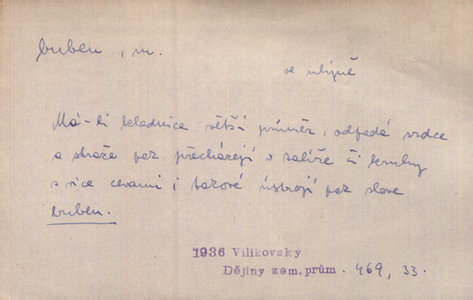 buben, m.
ve mlýně
Má-li kladnice větší průměr, odpadá srdce
a straže pak přecházejí v talíře či kruhy
s více cevami i takové ústrojí pak slove
buben.
1936 Vilikovský
Dějiny zem. prům. 469, 33.